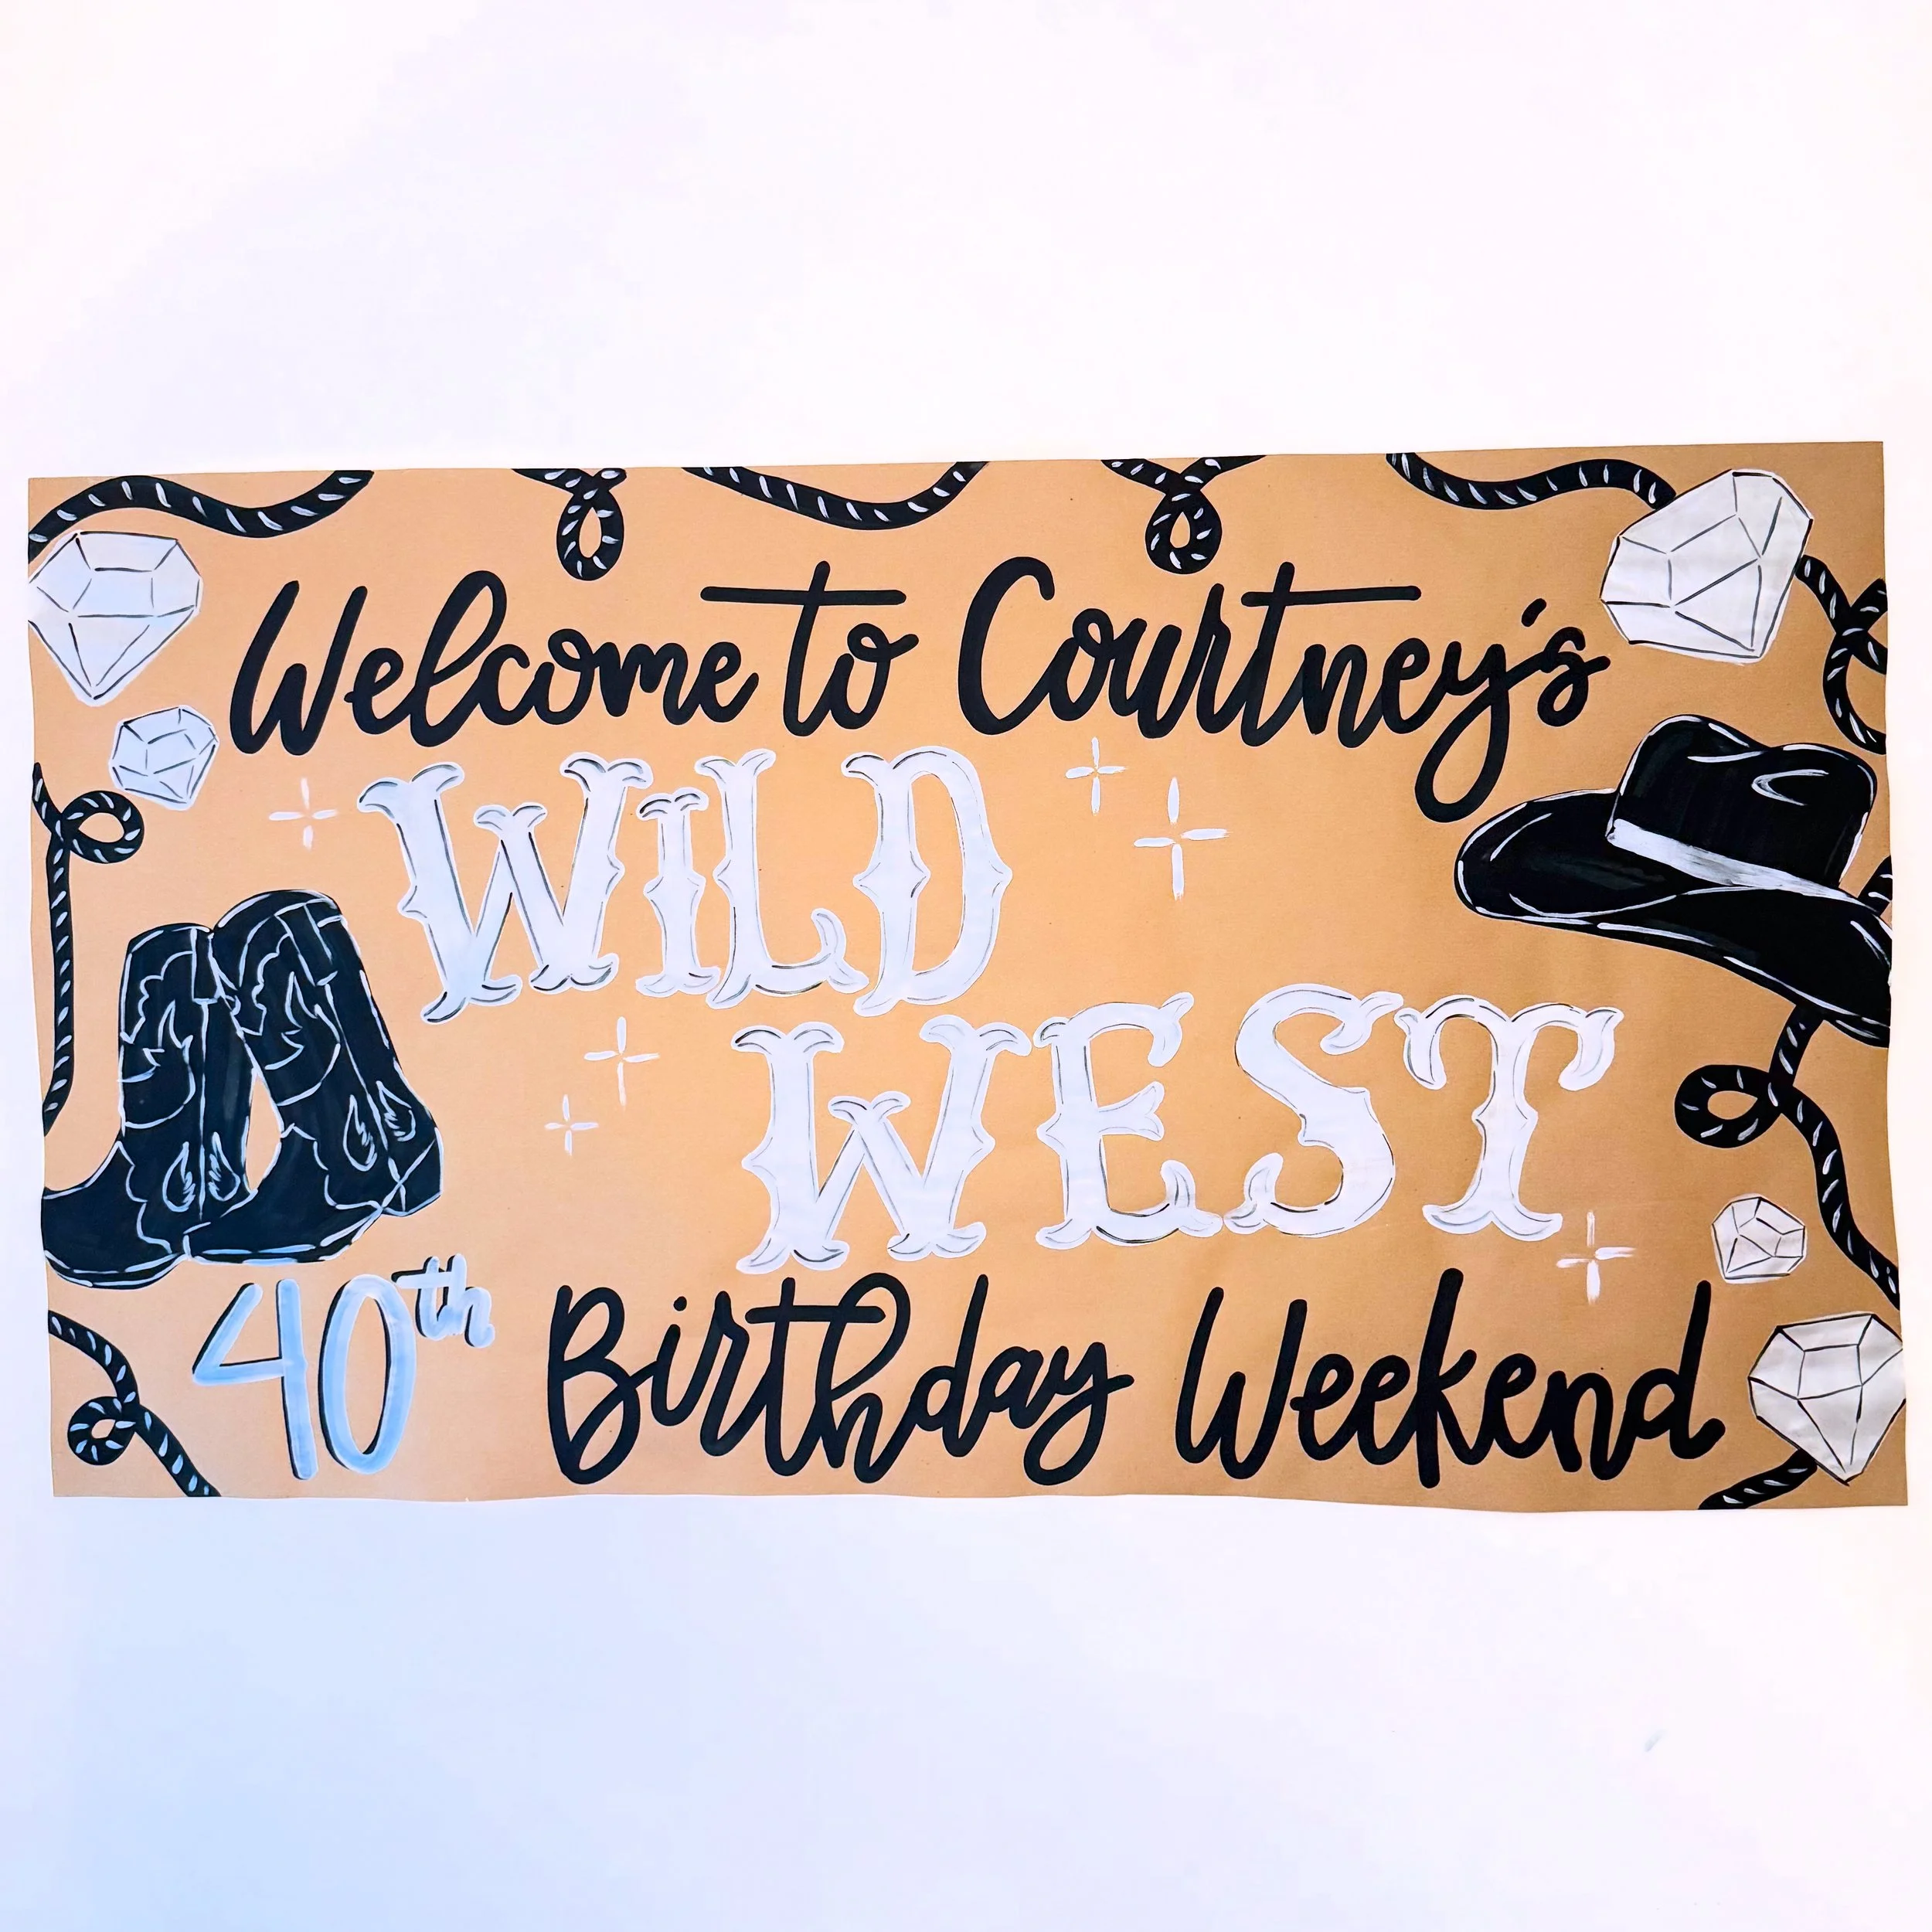 Welcome to Courtney's
WILD
WEST
40th Birthday Weekend